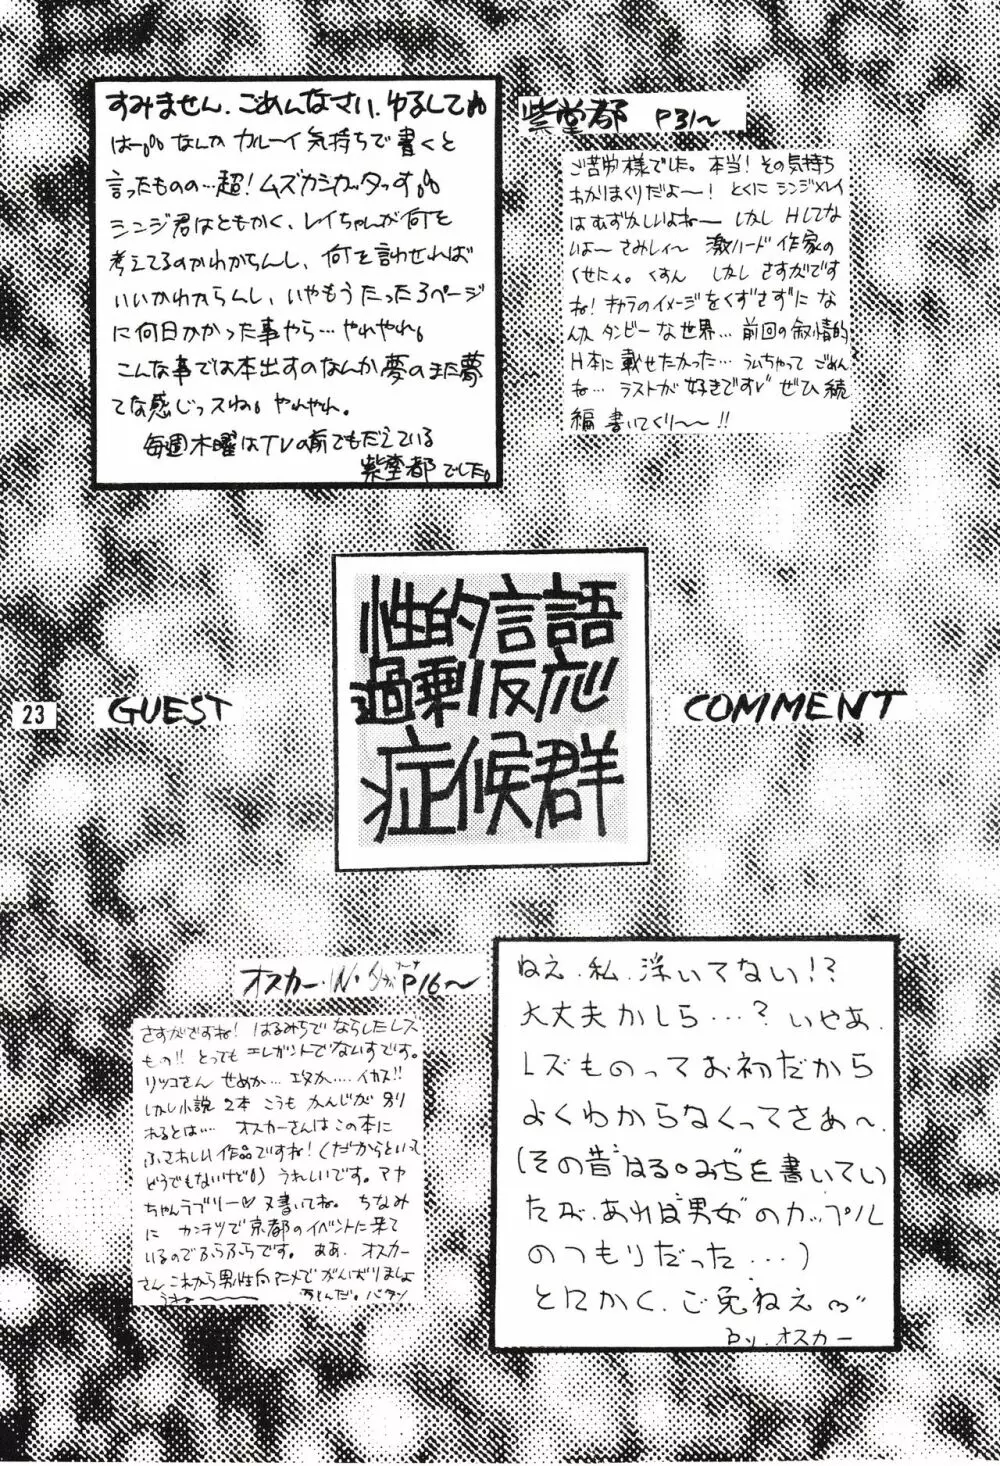 すみません.ごめんなさい.ゆるして
はー。なんか カルーイ気持ちで書くと
言ったものの…超!ムズカシカッタっす。
シンジ君はともかく、レイちゃんが何を
考えてるのかわからんし、何を言わせれば
いいかわからんし、いやもうたった3ページ
に何日かかった事やら…やれやれ。
こんな事では本出すのなんか夢のまた夢
てな感じっスね。やれやれ。
毎週木曜はTVの前でもだえている
紫堂都でした。
紫堂都 P31〜
ご苦労様でした。本当!その気持ち
わかりまくりだよ〜!とくにシンジ×レイ
はむずかしいよね〜しかしHしてな
いよ〜さみしい〜 激ハード作家の
くせに。くすん しかしさすがです
ね!キャラのイメージをくずさずに な
んか タンビーな世界…前回の叙情的
H本に載せたかった… ういちゃって ごめん
ね…ラストが好きです ぜひ続
編 書いてくり〜〜!!
性的言語
過剰反応
症候群
23
GUEST
COMMENT
オスカー・W・ P16〜
さすがですね!はるみちでならしたレズ
もの!!とってもエレガントでないすです。
リツコさん せめか…エダか…イカス!!
しかし小説2本こうもかんじが別
れるとは… オスカーさんはこの本に
ふさわしい作品ですね!(だからといって
どうでもないけど) うれしいです。マヤ
ちゃんラブリー♡又書いてね。ちなみ
に カンテツで京都のイベントに来て
いるのでふらふらです。ああ、オスカー
さんこれから男性向アニメでがんばりましょ
うね〜 バタン
ねえ.私.浮いてない!?
大丈夫かしら…?いやあ.
レズものってお初だから
よくわからなくってさぁ〜.
(その昔“はる。みち”を書いてい
たが.あれは“男女”のカップル
のつもりだった…)
とにかく.ご免ねえ
By.オスカー